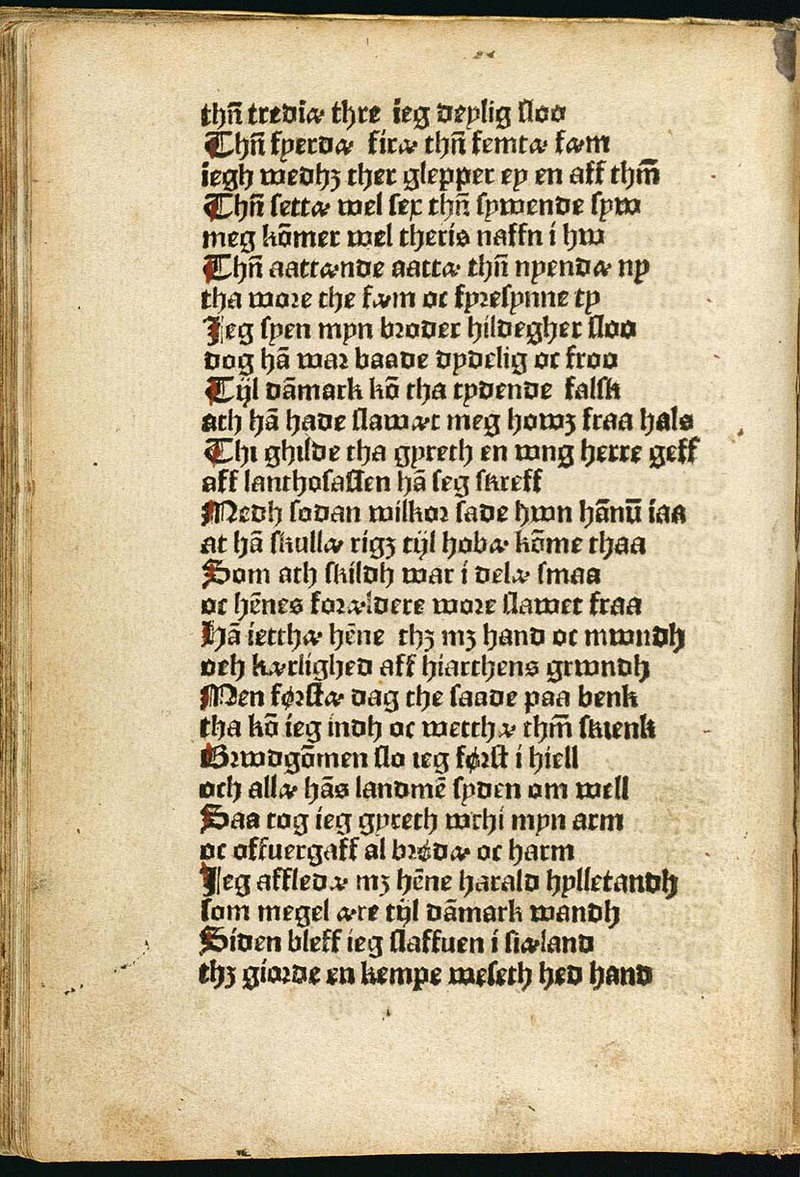 thn̄ trediæ thre ieg deylig sloo
Thn̄ fyerdæ firæ thn̄ femtæ fæm
iegh wedhꝫ ther glepper ey en aff thm̄
Thn̄ settæ wel sex thn̄ sywende syw
meg kōmer wel theris naffn i hw
Thn̄ aattænde aattæ thn̄ nyendæ ny
tha wore the fæm oc fyresynne ty
Jeg syen myn broder hildegher sloo
dog hā war baade dydelig oc froo
Tijl dāmark kō tha tydende falsk
ath hā hade slawæt meg howꝫ fraa hals
Thi ghilde tha gyreth en wng herre geff
aff lanthosassen hā seg skreff
Medh sodan wilkor sade hwn hānū iaa
at hā skullæ rigꝫ tijl hobæ kōme thaa
Som ath skildh war i delæ smaa
oc hēnes foræ̇ldere wore slawet fraa
Hā ietthæ hēne thꝫ mꝫ hand oc mwndh
och kærlighed aff hiarthens grwndh
Men førstæ dag the saade paa benk
tha kō ieg indh oc wetthæ thm̄ skienk
Brwdgōmen slo ieg først i hiell
och allæ hās landmē syden om well
Saa tog ieg gyreth wthi myn arm
oc offuergaff al brødæ oc harm
Jeg affledæ mꝫ hēne harald hylletandh
som megel ære tijl dāmark wandh
Siden bleff ieg slaffuen i siæland
thꝫ giorde en kempe weseth hed hand